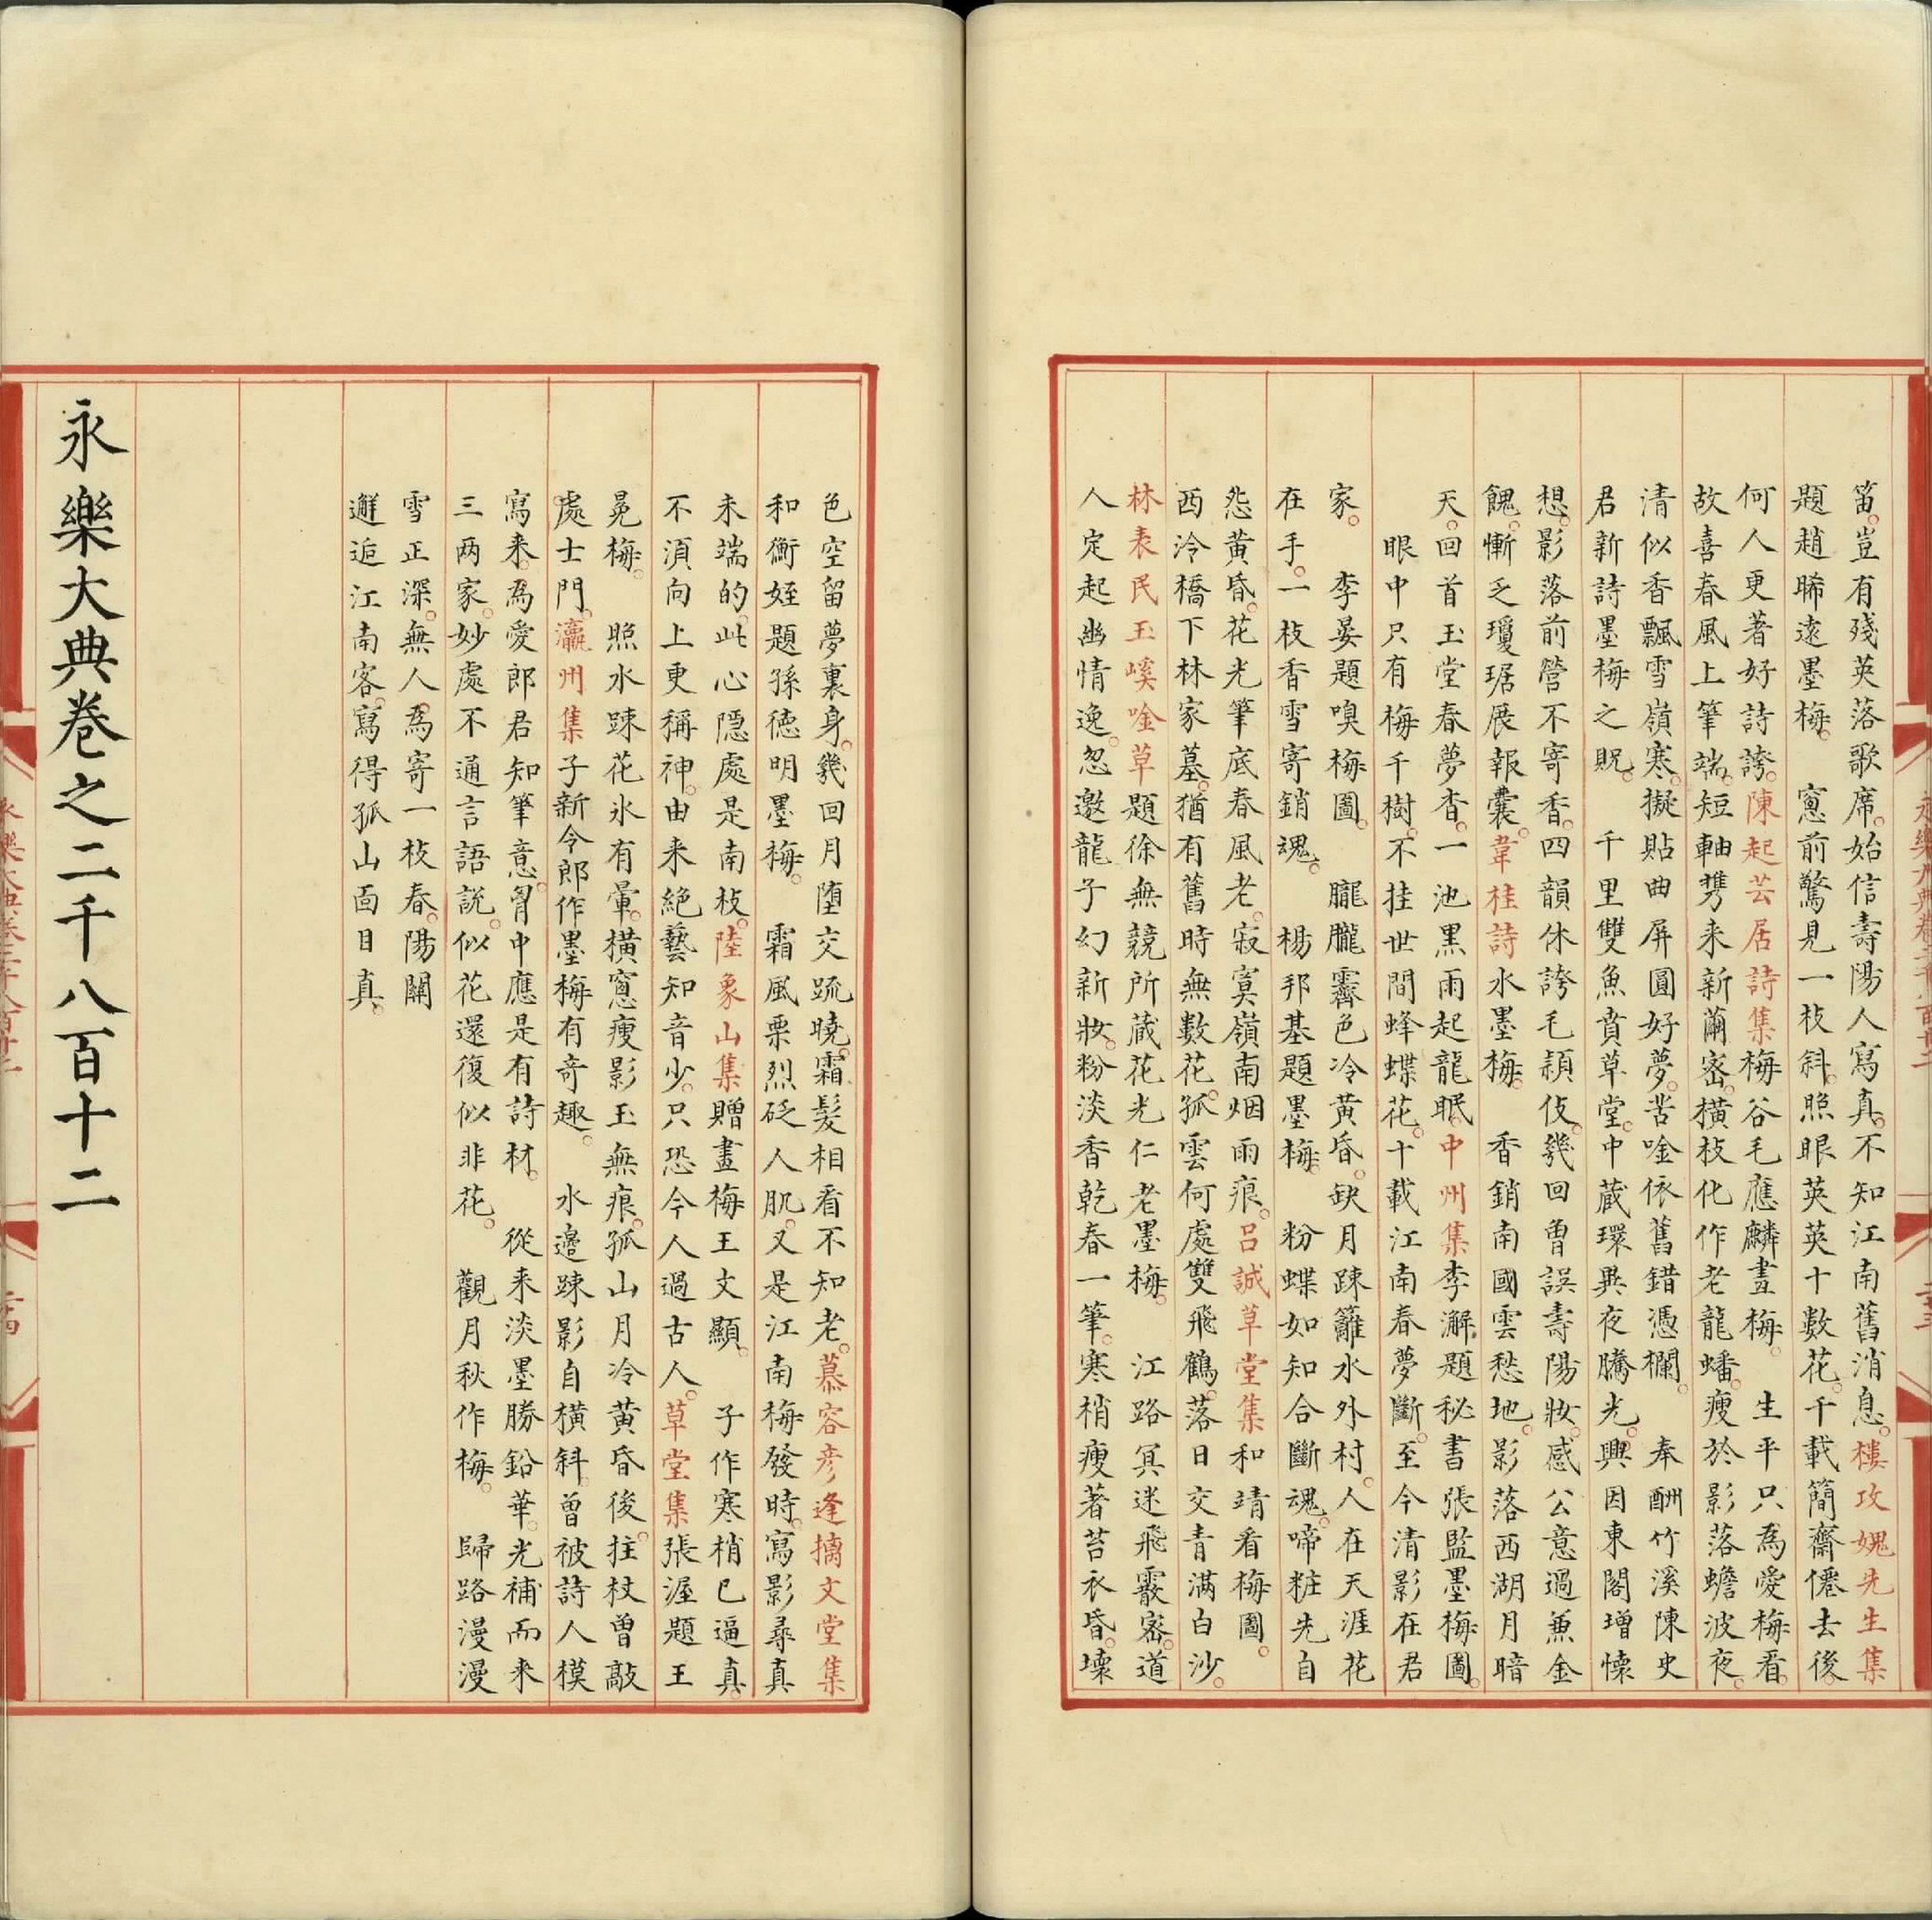 笛豈有殘英落歌席始信壽陽人寫真不知江南舊消息樓攻媿先生集
題趙晞遠墨梅　窻前驚見一枝斜照眼英英十數花千載簡齋僊去後
何人更著好詩誇陳起芸居詩集梅谷毛應麟畫梅　生平只為愛梅看
故喜春風上筆端短軸携来新繭宻橫枝化作老龍蟠瘦於影落蟾波夜
清似香飄雪嶺寒擬貼曲屏圓好夢苦唫依舊錯憑欄　奉酬竹溪陳史
君新詩墨梅之貺　千里雙魚賁草堂中蔵環異夜騰光興因東閣增懐
想影落前營不寄香四韻休誇毛穎伎幾回曾誤壽陽妝感公意過兼金
餽慚乏瓊琚展報嚢韋桂詩水墨梅　香銷南國雲愁地影落西湖月暗
天回首玉堂春夢杳一池黒雨起龍眠中州集李澥題秘書張監墨梅圖
眼中只有梅千樹不挂世間蜂蝶花十載江南春夢斷至今清影在君
家　李晏題嗅梅圖　朧朧霽色冷黄昏缺月踈籬水外村人在天涯花
在手一枝香雪寄銷魂　楊邦基題墨梅　粉蝶如知合斷魂啼粧先自
怨黄昏花光筆底春風老寂寞嶺南烟雨痕吕誠草堂集和靖看梅圖
西泠橋下林家墓猶有舊時無數花孤雲何處雙飛鶴落日交青滿白沙
林表民玉嵠唫草題徐無競所蔵花光仁老墨梅　江路冥迷飛霰宻道
人定起幽情逸忽邀龍子幻新妝粉淡香乾春一筆寒梢瘦著苔衣昏壊
色空留夢裏身幾回月堕交䟽曉霜髪相看不知老慕容彦逢摛文堂集
和衡姪題孫徳明墨梅　霜風栗烈砭人肌又是江南梅發時寫影尋真
未端的此心隠處是南枝陸象山集贈畫梅王文顯　子作寒梢已逼真
不湏向上更稱神由来絶藝知音少只恐今人過古人草堂集張渥題王
冕梅　照水踈花氷有暈橫窻瘦影玉無痕孤山月冷黄昏後拄杖曾敲
處士門瀛州集子新令郎作墨梅有竒趣　水邊踈影自橫斜曾被詩人模
寫来為愛郎君知筆意胷中應是有詩材　從来淡墨勝鉛華光補而来
三两家妙處不通言語説似花還復似非花　觀月秋作梅　歸路漫漫
雪正深無人為寄一枝春陽關
邂逅江南客寫得孤山面目真
永樂大典卷之二千八百十二